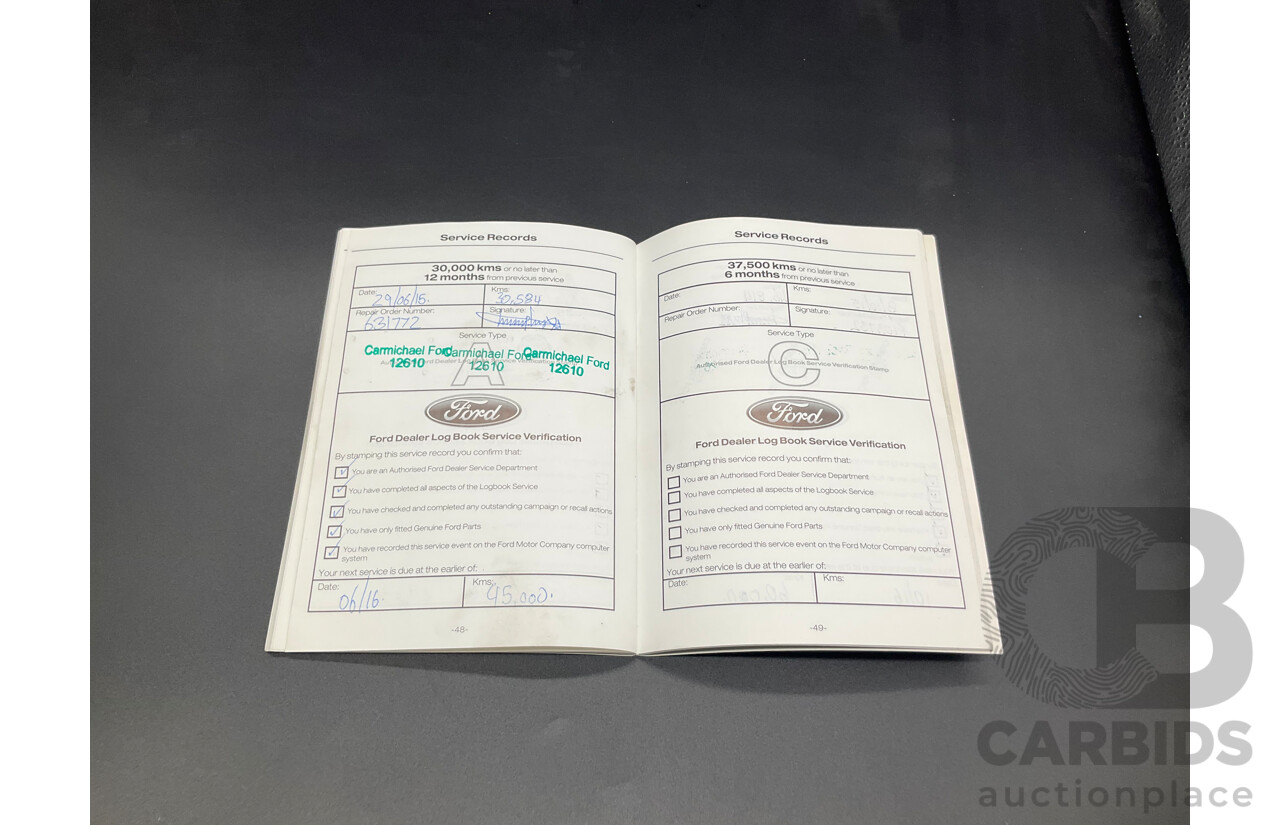 Service Records
30,000 kms or no later than
12 months from previous service
Date: 29/06/15.
Kms: 30,584
Repair Order Number: 631772
Signature:
Service Type
A
Carmichael Ford
12610
Carmichael Ford
12610
Carmichael Ford
12610
Ford
Ford Dealer Log Book Service Verification
By stamping this service record you confirm that:
You are an Authorised Ford Dealer Service Department
You have completed all aspects of the Logbook Service
You have checked and completed any outstanding campaign or recall actions
You have only fitted Genuine Ford Parts
You have recorded this service event on the Ford Motor Company computer
system
Your next service is due at the earlier of:
Date: 06/16.
Kms: 45,000.
-48-
Service Records
37,500 kms or no later than
6 months from previous service
Date:
Kms:
Repair Order Number:
Signature:
Service Type
C
Authorised Ford Dealer Log Book Service Verification Stamp
Ford
Ford Dealer Log Book Service Verification
By stamping this service record you confirm that:
You are an Authorised Ford Dealer Service Department
You have completed all aspects of the Logbook Service
You have checked and completed any outstanding campaign or recall actions
You have only fitted Genuine Ford Parts
You have recorded this service event on the Ford Motor Company computer
system
Your next service is due at the earlier of:
Date:
Kms:
-49-
CB
CARBIDS
auctionplace